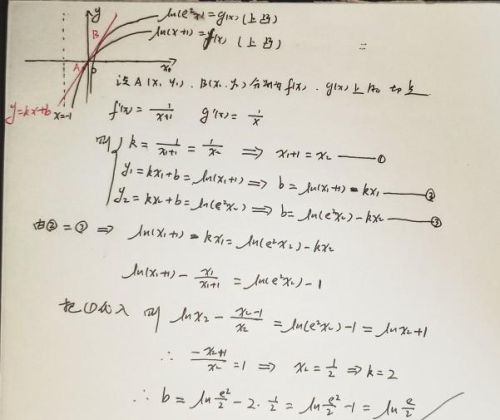 y
ln(e²x)=g(x) (上凸)
ln(x+1)=f(x) (上凸)
B
A
O
x
y=kx+b
x=-1
设A(x₁,y₁).B(x₂,y₂)分别为f(x).g(x)上的切点
f'(x)=1/(x+1) g'(x)=1/x
则 k=1/(x₁+1)=1/x₂ ⟹ x₁+1=x₂ —①
y₁=kx₁+b=ln(x₁+1) ⟹ b=ln(x₁+1)-kx₁ —②
y₂=kx₂+b=ln(e²x₂) ⟹ b=ln(e²x₂)-kx₂ —③
由②=③ ⟹ ln(x₁+1)-kx₁=ln(e²x₂)-kx₂
ln(x₁+1)-x₁/(x₁+1)=ln(e²x₂)-1
把①代入 则 lnx₂-(x₂-1)/x₂=ln(e²x₂)-1=lnx₂+1
∴ (-x₂+1)/x₂=1 ⟹ x₂=1/2 ⟹ k=2
∴ b=ln e²/2-2·1/2=ln e²/2-1=ln e/2